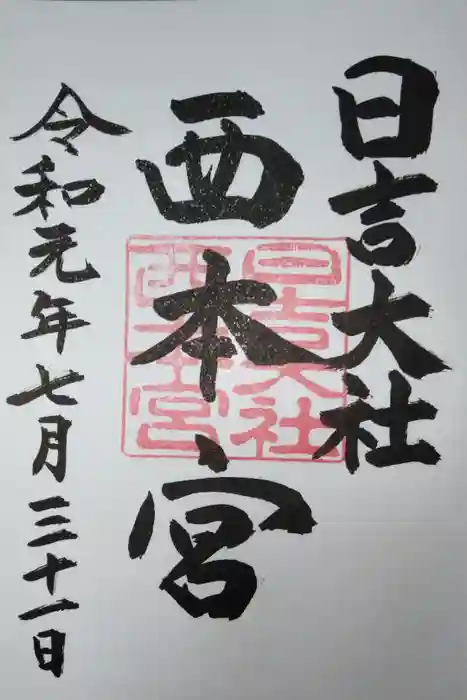 日吉大社
西本宮
令和元年七月三十一日
日吉大社
西本宮